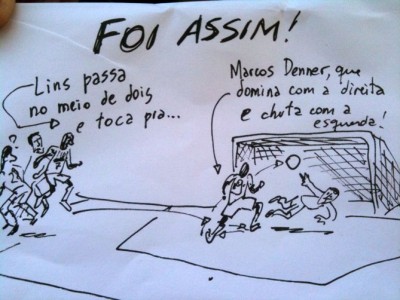 FOI ASSIM!
Lins passa
no meio de dois
e toca pra...
Marcos Denner, que
domina com a direita
e chuta com a
esquerda!